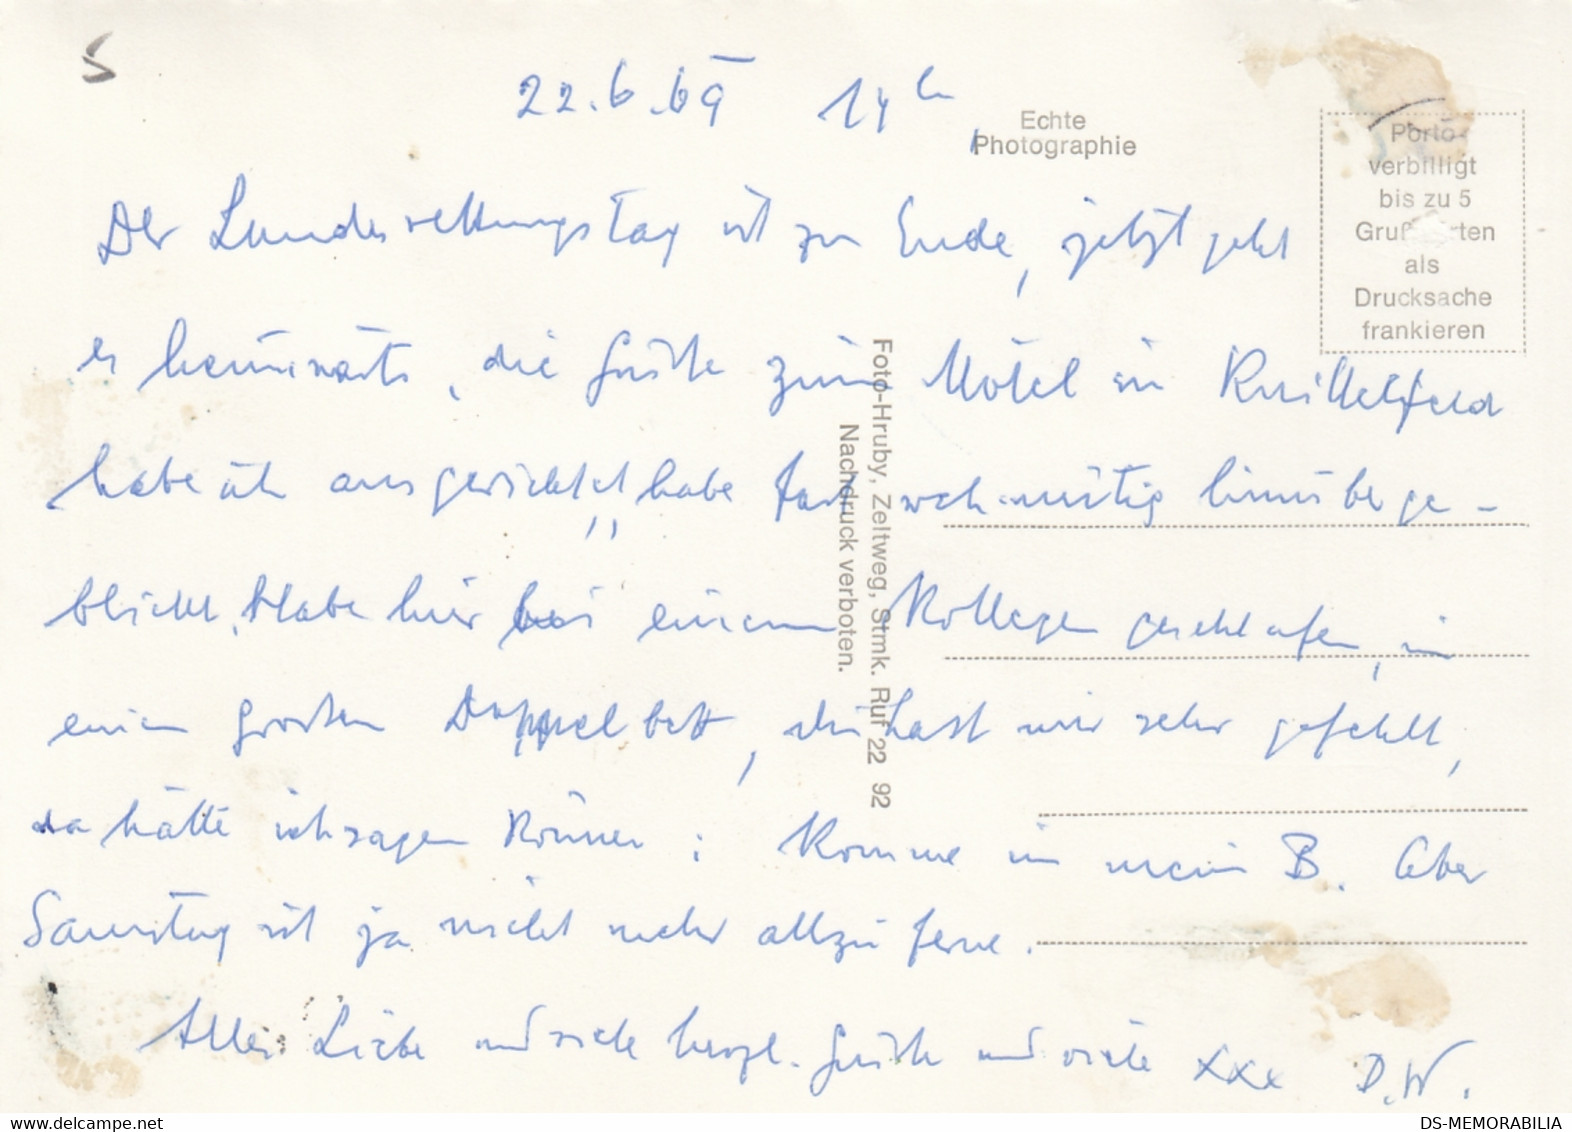 S
22.6.69 14h
Echte
Photographie
Porto
verbilligt
bis zu 5
Gruß rten
als
Drucksache
frankieren
Der Landesrettungstag ist zu Ende, jetzt geht
es heimwärts, die Grüße zum Motel in Knittelfeld
habe ich ausgerichtet, habe fast wehmütig hinüberge-
blickt. Habe hier bei einem Kollegen geschlafen, in
einem großen Doppelbett, du hast mir sehr gefehlt,
da hätte ich sagen können: Komme in mein B. Aber
Samstag ist ja nicht mehr allzu ferne.
Alles Liebe und viele herzl. Grüße und viele xxx D.W.
Foto-Hruby, Zeltweg, Stmk. Ruf 22 92
Nachdruck verboten.
https://www.delcampe.net
DS-MEMORABILIA